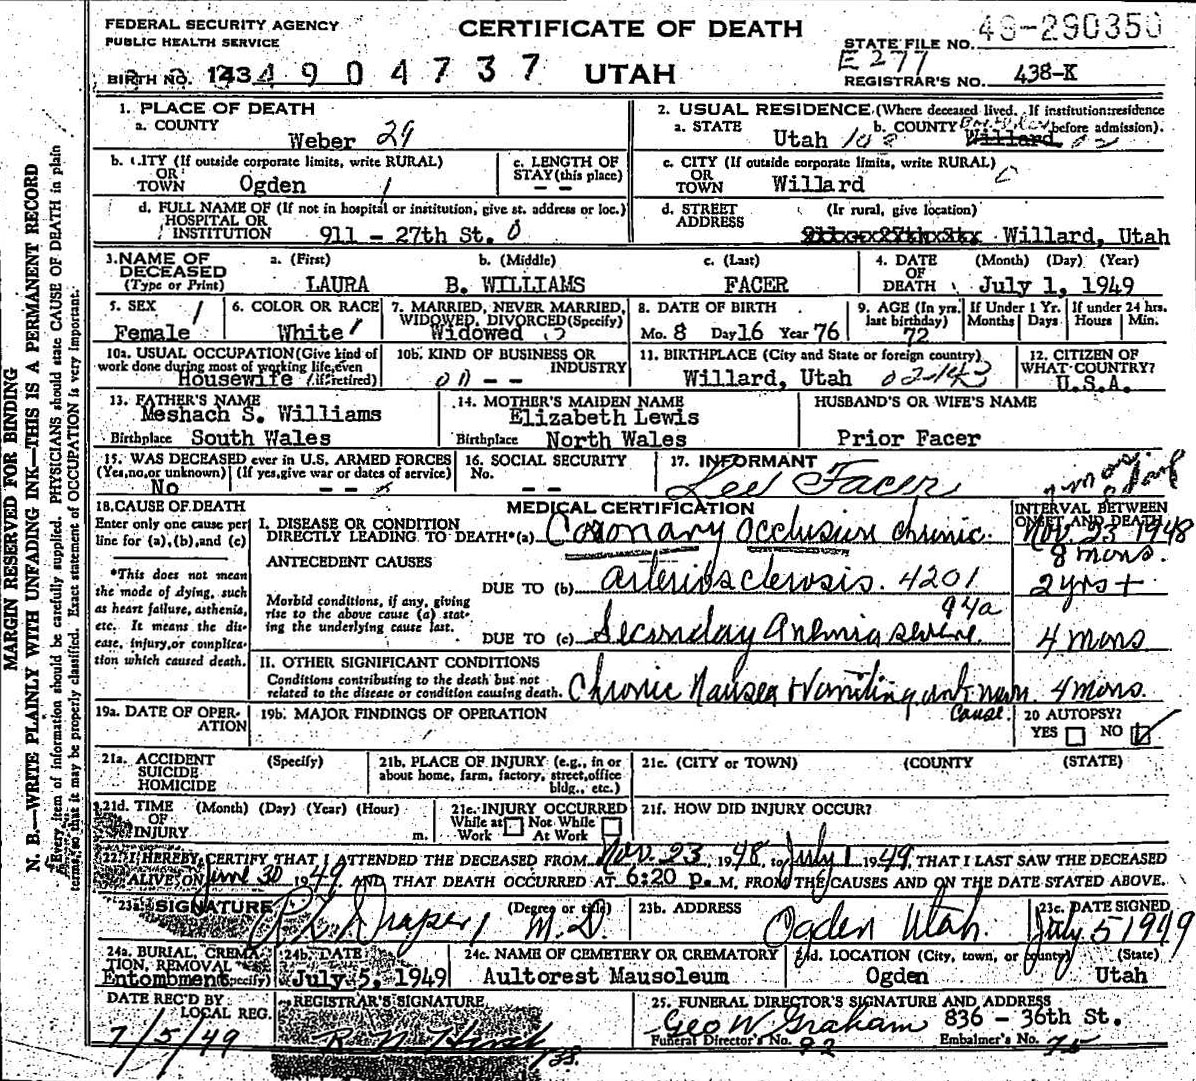 FEDERAL SECURITY AGENCY
PUBLIC HEALTH SERVICE
CERTIFICATE OF DEATH
STATE FILE NO. 49-290350
E 277
BIRTH NO. 143 4904737 UTAH REGISTRAR'S NO. 438-K
1. PLACE OF DEATH
a. COUNTY
Weber 29
2. USUAL RESIDENCE (Where deceased lived. If institution: residence before admission).
a. STATE Utah b. COUNTY Willard
b. CITY (If outside corporate limits, write RURAL)
OR
TOWN Ogden 1
c. LENGTH OF
STAY (this place)
--
c. CITY (If outside corporate limits, write RURAL)
OR
TOWN Willard
d. FULL NAME OF (If not in hospital or institution, give st. address or loc.)
HOSPITAL OR
INSTITUTION 911 - 27th St. 0
d. STREET (If rural, give location)
ADDRESS Willard, Utah
3. NAME OF DECEASED
(Type or Print)
a. (First) b. (Middle) c. (Last)
LAURA B. WILLIAMS FACER
4. DATE OF DEATH (Month) (Day) (Year)
July 1, 1949
5. SEX
Female
6. COLOR OR RACE
White
7. MARRIED, NEVER MARRIED,
WIDOWED, DIVORCED (Specify)
Widowed
8. DATE OF BIRTH
Mo. 8 Day 16 Year 76
9. AGE (In yrs. last birthday)
72
If Under 1 Yr.
Months Days
If under 24 hrs.
Hours Min.
10a. USUAL OCCUPATION (Give kind of
work done during most of working life, even
if retired)
Housewife
10b. KIND OF BUSINESS OR
INDUSTRY
--
11. BIRTHPLACE (City and State or foreign country)
Willard, Utah
12. CITIZEN OF
WHAT COUNTRY?
U.S.A.
13. FATHER'S NAME
Meshach S. Williams
Birthplace South Wales
14. MOTHER'S MAIDEN NAME
Elizabeth Lewis
Birthplace North Wales
HUSBAND'S OR WIFE'S NAME
Prior Facer
15. WAS DECEASED ever in U.S. ARMED FORCES
(Yes, no, or unknown) (If yes, give war or dates of service)
No ---
16. SOCIAL SECURITY
No. --
17. INFORMANT
Lee Facer
18. CAUSE OF DEATH
Enter only one cause per
line for (a), (b), and (c)
*This does not mean
the mode of dying, such
as heart failure, asthenia,
etc. It means the dis-
ease, injury, or complica-
tion which caused death.
MEDICAL CERTIFICATION
INTERVAL BETWEEN
ONSET AND DEATH
I. DISEASE OR CONDITION
DIRECTLY LEADING TO DEATH*(a) Coronary Occlusion chronic. Nov. 23-1948
8 mons.
ANTECEDENT CAUSES
DUE TO (b) arteriosclerosis. 4201 2 yrs +
94a
Morbid conditions, if any, giving
rise to the above cause (a) stat-
ing the underlying cause last.
DUE TO (c) Secondary Anemia severe 4 mons
II. OTHER SIGNIFICANT CONDITIONS
Conditions contributing to the death but not
related to the disease or condition causing death.
Chronic Nausea + Vomiting unknown cause. 4 mons.
19a. DATE OF OPER-
ATION
19b. MAJOR FINDINGS OF OPERATION
20 AUTOPSY?
YES NO
21a. ACCIDENT
SUICIDE
HOMICIDE
(Specify)
21b. PLACE OF INJURY (e.g., in or
about home, farm, factory, street, office
bldg., etc.)
21c. (CITY or TOWN) (COUNTY) (STATE)
21d. TIME (Month) (Day) (Year) (Hour)
OF
INJURY m.
21e. INJURY OCCURRED
While at Work Not While At Work
21f. HOW DID INJURY OCCUR?
22. I HEREBY CERTIFY THAT I ATTENDED THE DECEASED FROM Nov. 23, 1948, to July 1 1949, THAT I LAST SAW THE DECEASED
ALIVE ON June 30 1949 AND THAT DEATH OCCURRED AT 6:20 p. M, FROM THE CAUSES AND ON THE DATE STATED ABOVE.
23a. SIGNATURE (Degree or title)
Draper M.D.
23b. ADDRESS
Ogden Utah.
23c. DATE SIGNED
July 5 1949
24a. BURIAL, CREMA-
TION, REMOVAL
(Specify)
Entombment
24b. DATE
July 5, 1949
24c. NAME OF CEMETERY OR CREMATORY
Aultorest Mausoleum
24d. LOCATION (City, town, or county) (State)
Ogden Utah
DATE REC'D BY
LOCAL REG.
7/5/49
REGISTRAR'S SIGNATURE
25. FUNERAL DIRECTOR'S SIGNATURE AND ADDRESS
Geo W. Graham 836 - 36th St.
Funeral Director's No. 92 Embalmer's No. 75
MARGIN RESERVED FOR BINDING
N. B.—WRITE PLAINLY WITH UNFADING INK—THIS IS A PERMANENT RECORD
Every item of information should be carefully supplied. PHYSICIANS should state CAUSE OF DEATH in plain
terms, so that it may be properly classified. Exact statement of OCCUPATION is very important.